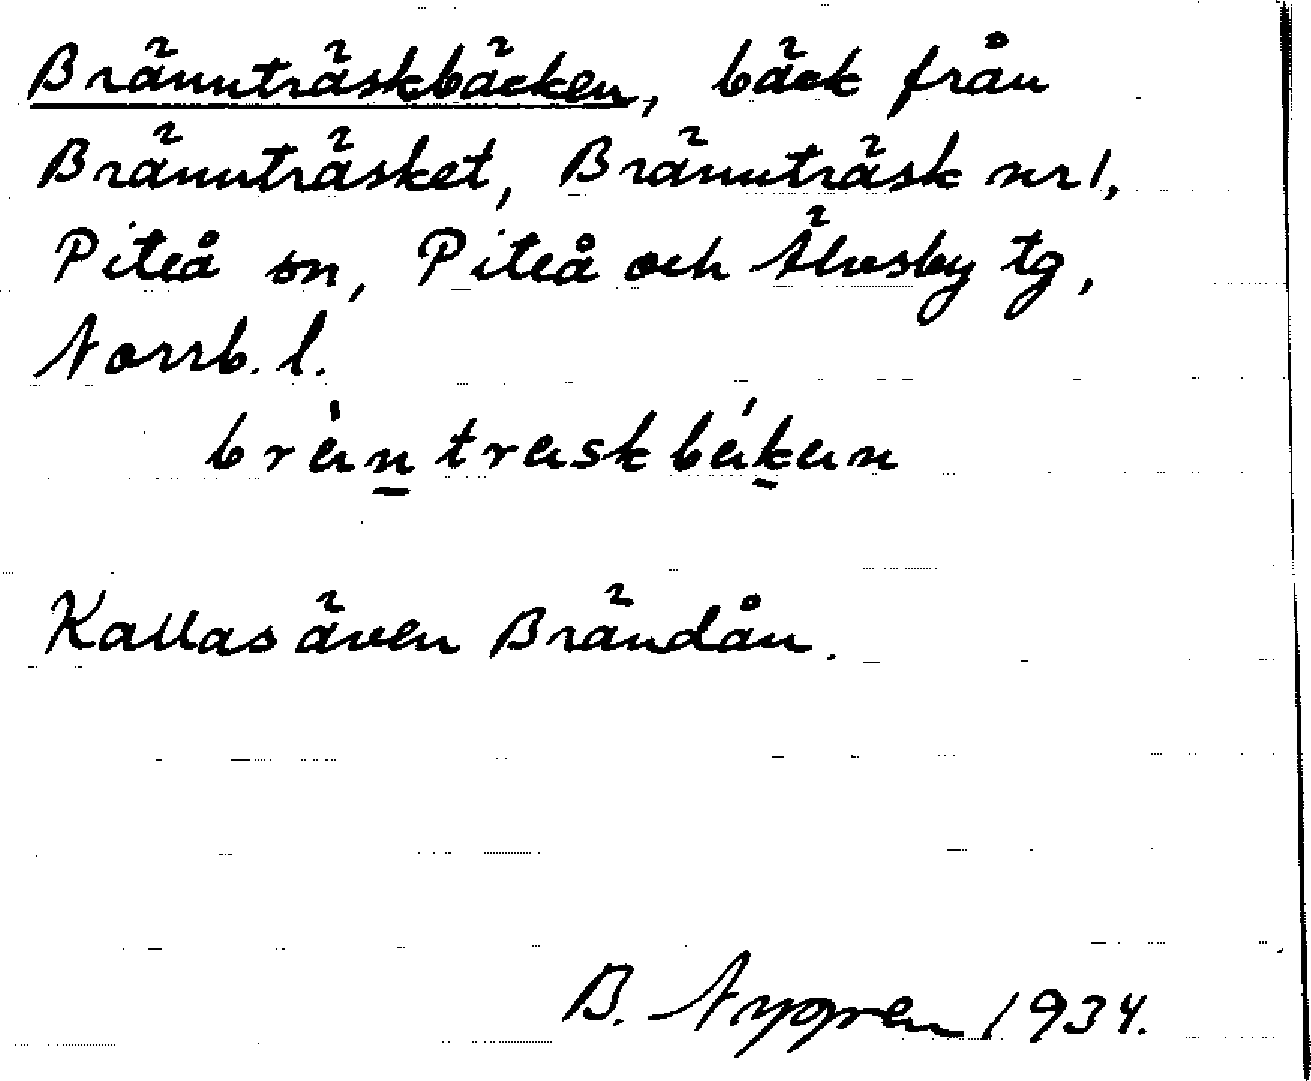 Brännträskbäcken, bäck från
Brännträsket, Brännträsk nr 1,
Piteå sn, Piteå och Älvsby tg,
Norrb. l.
brä̀n̲träskbä́k̲än
Kallas även Brändån.
B. Nygren 1934.